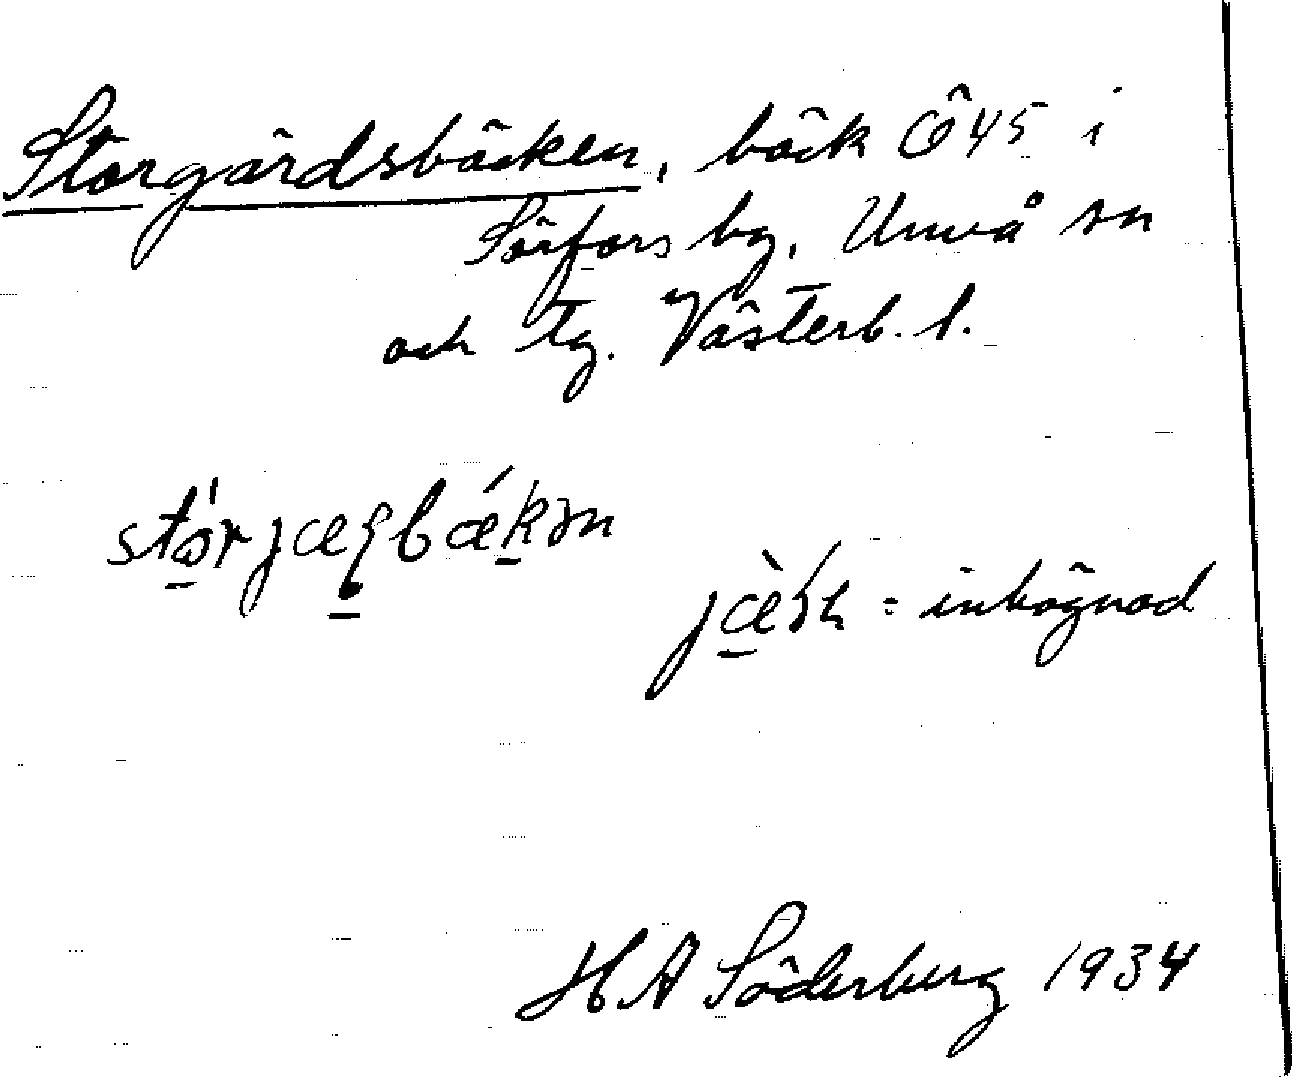 Storgärdsbäcken, bäck Ö45 i
Sörfors by, Umeå sn
och tg. Västerb. l.
inhägnad
H A Söderberg 1934